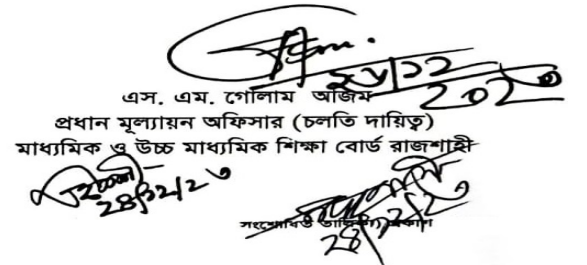 ২৮/১২
২০২৩
এস. এম. গোলাম আজম
প্রধান মূল্যায়ন অফিসার (চলতি দায়িত্ব)
মাধ্যমিক ও উচ্চ মাধ্যমিক শিক্ষা বোর্ড রাজশাহী
২৪/১২/২৩
সংশোধিত তালিকা প্রকাশ
২৪/১২/২৩